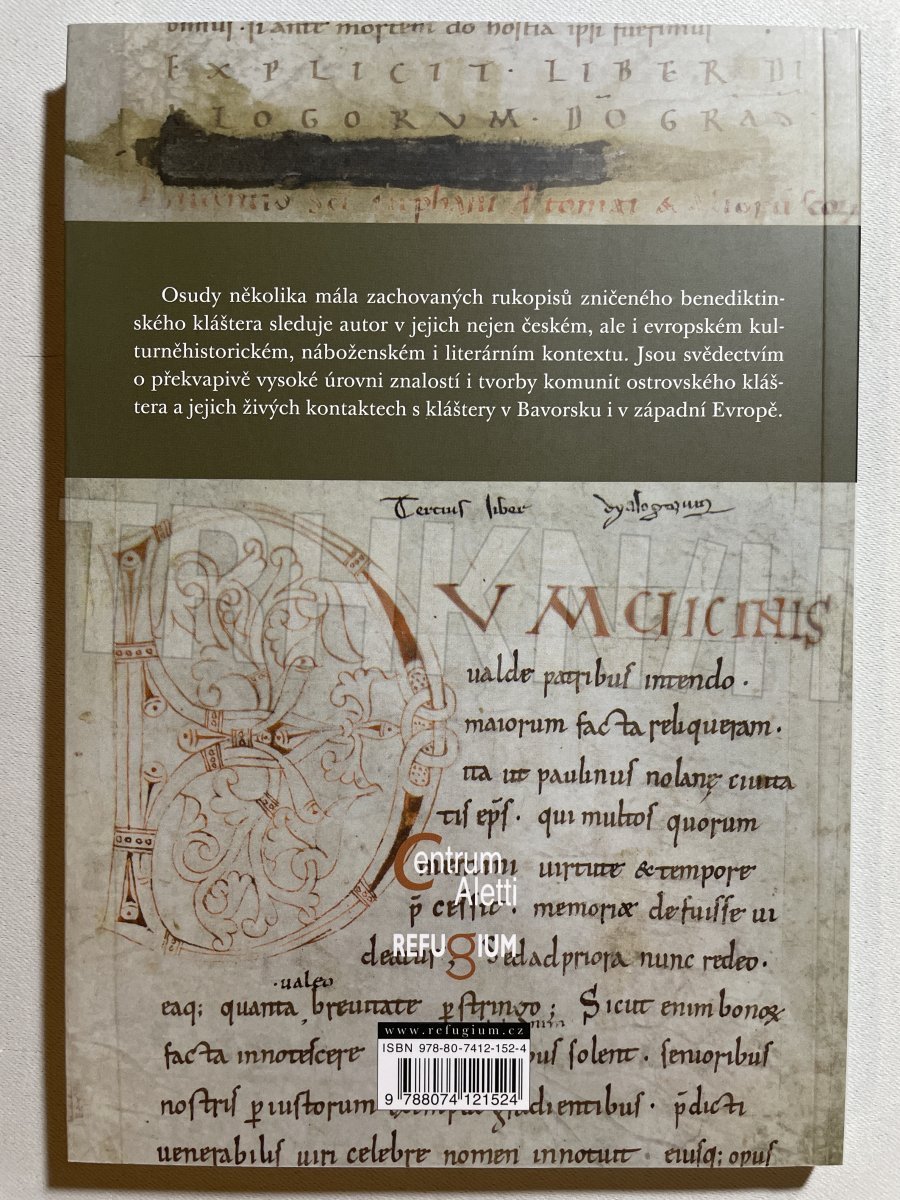 omnis · si ante mortem do hostia ipsi fuerimus
EXPLICIT · LIBER DI
LOGORUM · DO GRA
Osudy několika mála zachovaných rukopisů zničeného benediktin-
ského kláštera sleduje autor v jejich nejen českém, ale i evropském kul-
turněhistorickém, náboženském i literárním kontextu. Jsou svědectvím
o překvapivě vysoké úrovni znalostí i tvorby komunit ostrovského kláš-
tera a jejich živých kontaktech s kláštery v Bavorsku i v západní Evropě.
Tercius liber dyalogorum
TRHKNIH
UM
ualde patribus intendo ·
maiorum facta reliqueram ·
ita ut paulinus nolanę ciuita
tis ep̄s · qui multos quorum
Centrum
Aletti
memini uirtute & tempore
p̄cessit · memoriæ defuisse ui
REFUgIUM
deatur, Sed ad priora nunc redeo ·
· ualeo
eaq; quanta breuitate ꝑstringo; Sicut enim bonoꝝ
facta innotescere solent · senioribus
www.refugium.cz
ISBN 978-80-7412-152-4
9 788074 121524
nostris ꝑ iustorum gradientibus · p̄dicti
uenerabilis uiri celebre nomen innotuit · eiusq; opus